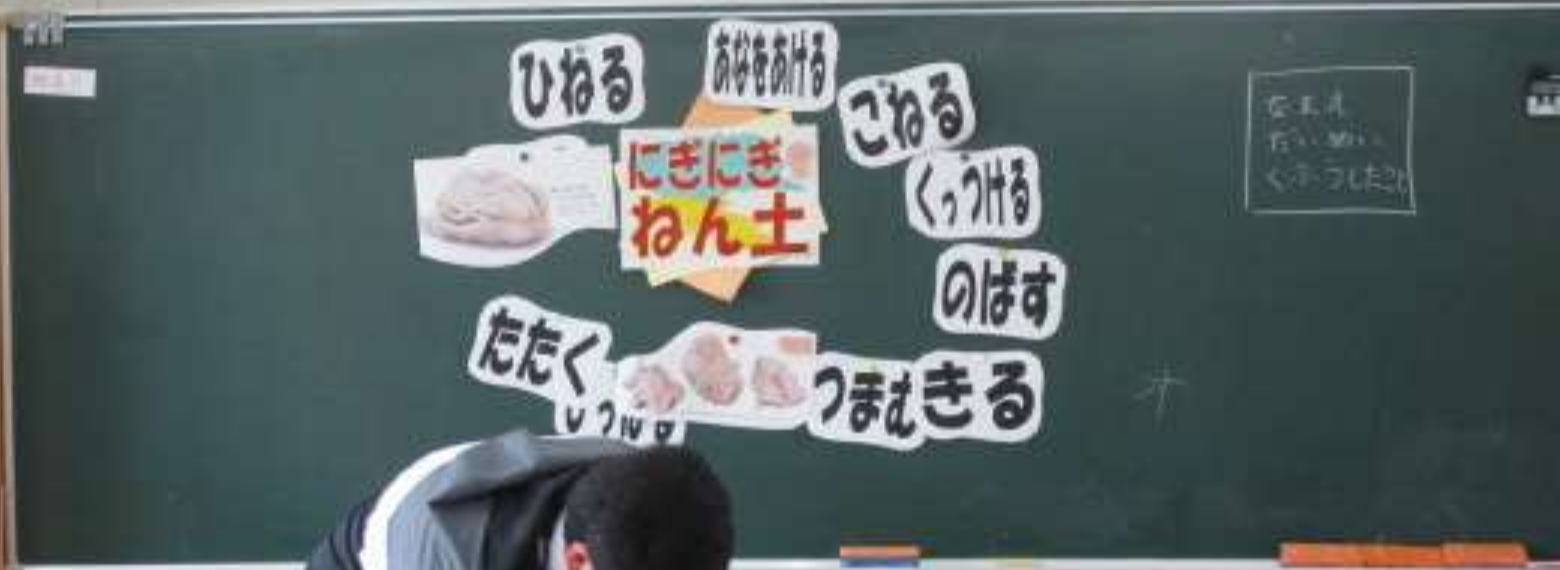 ひねる
あなをあける
こねる
くっつける
にぎにぎ
ねん土
のばす
たたく
つまむ
きる
なまえ
だいめい
くふうしたこと
オ